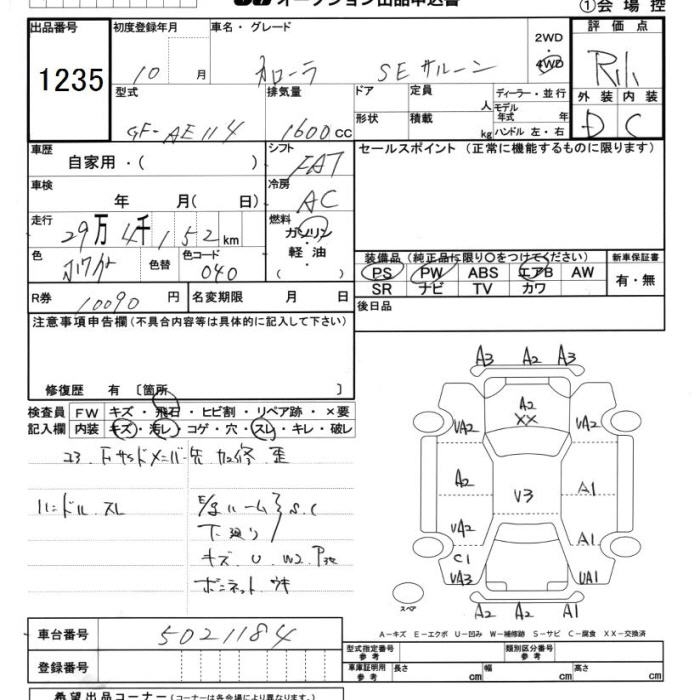 オークション出品申込書
①会場控
出品番号 初度登録年月 車名・グレード 評価点
1235 10 月 カローラ SEサルーン 2WD 4WD
型式 排気量 ドア 定員 人 ディーラー・並行 外装 内装
GF-AE114 1600cc 形状 積載 kg モデル年式 年 ハンドル 左・右 D C
車歴 シフト セールスポイント(正常に機能するものに限ります)
自家用・( ) FAT
車検 冷房
年 月( 日) AC
走行 燃料
29万4千152km ガソリン
軽油
( )
色 色替 色コード 装備品(純正品に限り○をつけてください) 新車保証書
040 PS PW ABS エアB AW 有・無
SR ナビ TV カワ
R券 10090円 名変期限 月 日 後日品
注意事項申告欄(不具合内容等は具体的に記入して下さい)
修復歴 有〔箇所 〕
検査員 FW キズ・飛石・ヒビ割・リペア跡・×要
記入欄 内装 キズ・汚レ・コゲ・穴・スレ・キレ・破レ
ハンドル スレ
ルーム S.C
下廻り
キズ U W2
ボンネット ウキ
A3 A2 A3
A2
XX
VA2 VA2
A2 V3 A1
VA2 A1
C1
VA3 UA1
スペア A2 A2 A1
A-キズ E-エクボ U-凹み W-補修跡 S-サビ C-腐食 XX-交換済
車台番号 5021184
型式指定番号 参考 類別区分番号 参考
登録番号 車庫証明用 参考 長さ cm 幅 cm 高さ cm
希望出品コーナー(コーナーは各会場により異なります。)